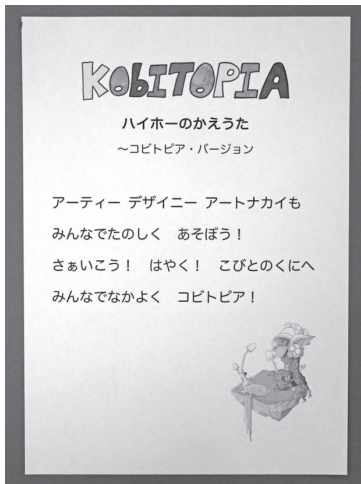 KOBITOPIA
ハイホーのかえうた
～コビトピア・バージョン
アーティー デザイニー アートナカイも
みんなでたのしく　あそぼう！
さぁいこう！　はやく！　こびとのくにへ
みんなでなかよく　コビトピア！